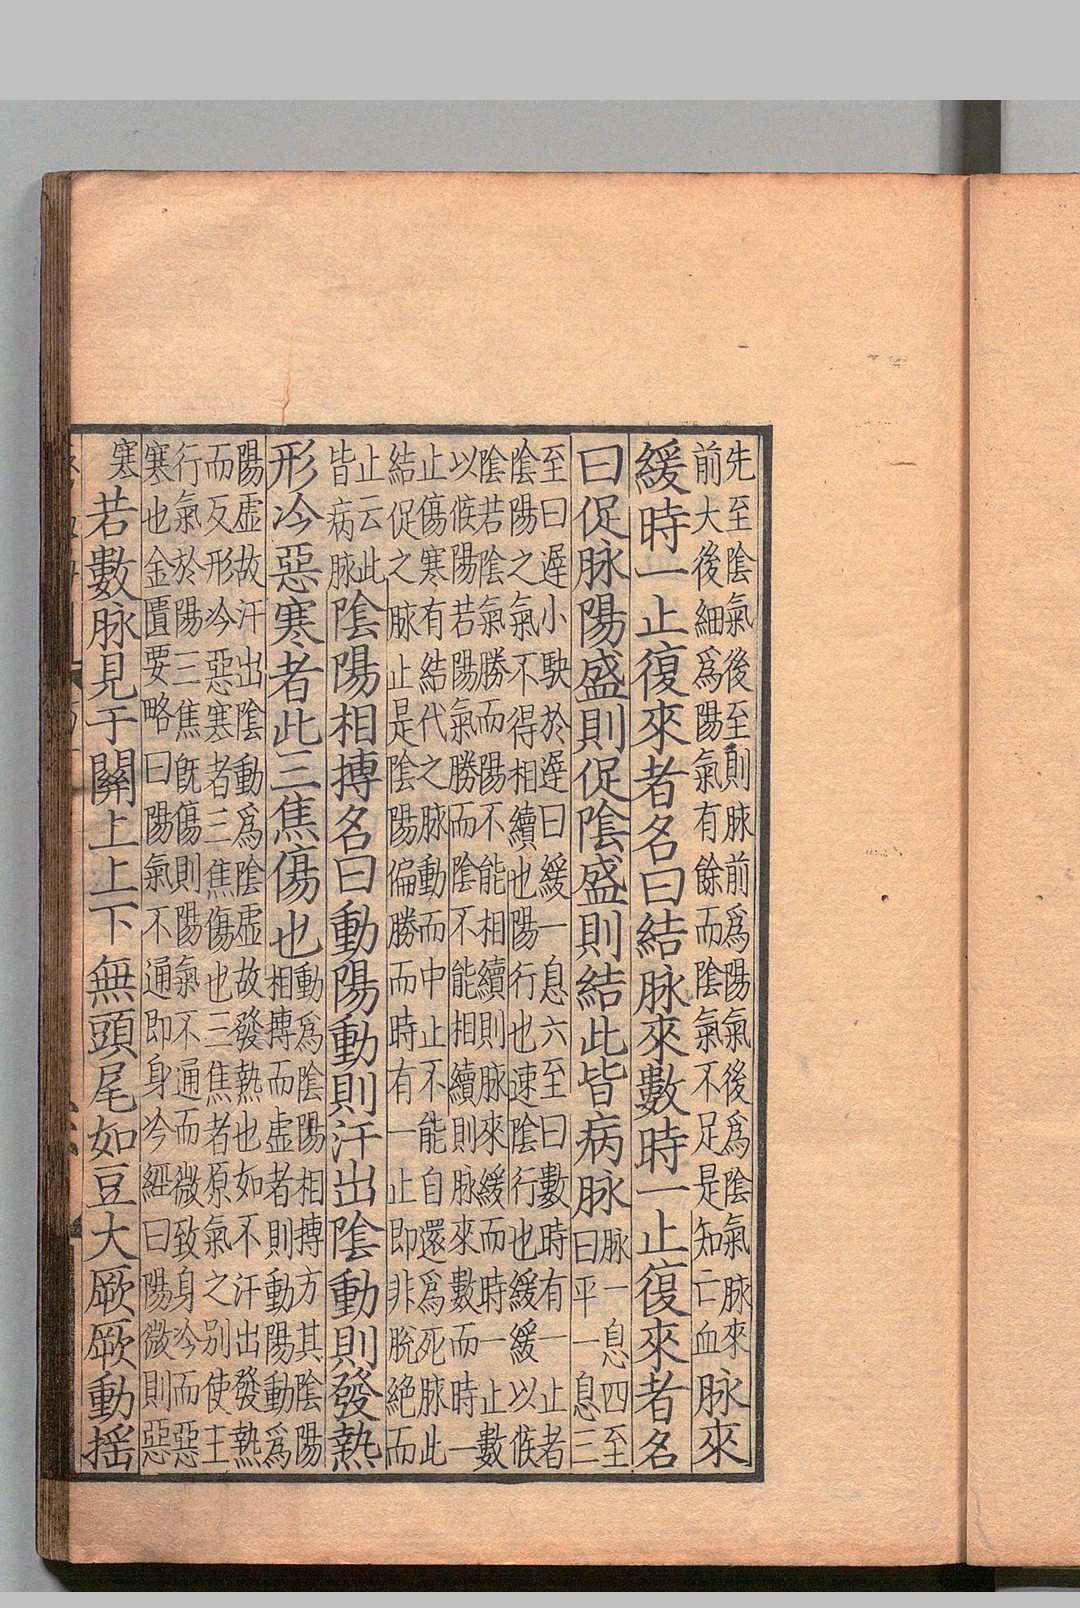 先至陰氣後至則脉前爲陽氣後爲陰氣脉來
前大後細爲陽氣有餘而陰氣不足是知亡血
脉來
緩時一止復來者名曰結脉來數時一止復來者名
曰促脉陽盛則促陰盛則結此皆病脉
脉一息四至
曰平一息三
至曰遲小駛於遲曰緩一息六至曰數時有一止者
陰陽之氣不得相續也陽行也速陰行也緩緩以候
陰若陰氣勝而陽不能相續則脉來緩而時一止數
以候陽若陽氣勝而陰不能相續則脉來數而時一
止傷寒有結代之脉動而中止不能自還爲死脉此
結促之脉止是陰陽偏勝而時有一止即非脫絕而
止云此
皆病脉
陰陽相搏名曰動陽動則汗出陰動則發熱
形冷惡寒者此三焦傷也
動爲陰陽相搏方其陰陽
相搏而虛者則動陽動爲
陽虛故汗出陰動爲陰虛故發熱也如不汗出發熱
而反形冷惡寒者三焦傷也三焦者原氣之別使主
行氣於陽三焦旣傷則陽氣不通而微致身冷而惡
寒也金匱要略曰陽氣不通即身冷經曰陽微則惡
寒
若數脉見于關上上下無頭尾如豆大厥厥動搖